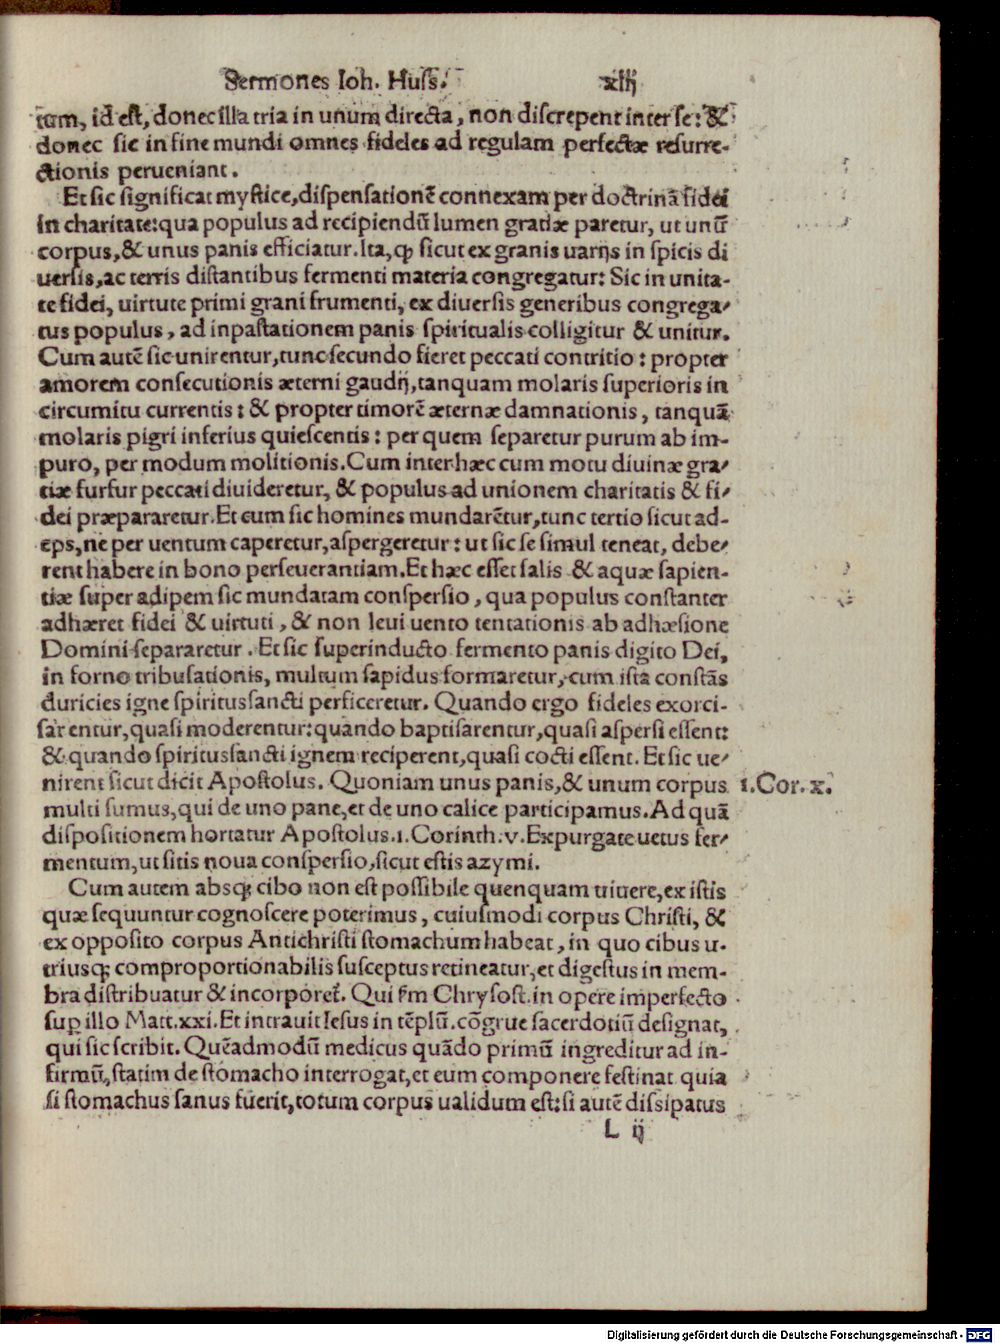 Sermones Ioh. Huſs. xlij
tum, id eſt, donec illa tria in unum directa, non diſcrepent inter ſe: &
donec sic in fine mundi omnes fideles ad regulam perfectæ reſurre-
ctionis perueniant.
Et sic significat myſtice, diſpenſationē connexam per doctrinā fidei
in charitate: qua populus ad recipiendū lumen gratiæ paretur, ut unū
corpus, & unus panis efficiatur. Ita, ꝙ sicut ex granis uarijs in ſpicis di
uerſis, ac terris diſtantibus fermenti materia congregatur: Sic in unita-
te fidei, uirtute primi grani frumenti, ex diuerſis generibus congrega-
tus populus, ad inpaſtationem panis ſpiritualis colligitur & unitur.
Cum autē sic unirentur, tunc ſecundo fieret peccati contritio: propter
amorem conſecutionis æterni gaudij, tanquam molaris ſuperioris in
circumitu currentis: & propter timorē æternæ damnationis, tanquā
molaris pigri inferius quieſcentis: per quem ſeparetur purum ab im-
puro, per modum molitionis. Cum inter hæc cum motu diuinæ gra-
tiæ furfur peccati diuideretur, & populus ad unionem charitatis & fi-
dei præpararetur. Et cum sic homines mundarētur, tunc tertio sicut ad-
eps, ne per uentum caperetur, aſpergeretur: ut sic ſe simul teneat, debe-
rent habere in bono perſeuerantiam. Et hæc eſſet ſalis & aquæ ſapien-
tiæ ſuper adipem sic mundatam conſperſio, qua populus conſtanter
adhæret fidei & uirtuti, & non leui uento tentationis ab adhæſione
Domini ſepararetur. Et sic ſuperinducto fermento panis digito Dei,
in forno tribulationis, multum ſapidus formaretur, cum iſta conſtās
duricies igne ſpiritusſancti perficeretur. Quando ergo fideles exorci-
ſarentur, quaſi moderentur: quando baptiſarentur, quaſi aſperſi eſſent:
& quando ſpiritusſancti ignem reciperent, quaſi cocti eſſent. Et sic ue-
nirent sicut dicit Apoſtolus. Quoniam unus panis, & unum corpus 1. Cor. x.
multi ſumus, qui de uno pane, et de uno calice participamus. Ad quā
diſpoſitionem hortatur Apoſtolus. 1. Corinth. v. Expurgate uetus fer-
mentum, ut sitis noua conſperſio, sicut eſtis azymi.
Cum autem absq; cibo non eſt poſſibile quenquam uiuere, ex iſtis
quæ ſequuntur cognoſcere poterimus, cuiuſmodi corpus Chriſti, &
ex oppoſito corpus Antichriſti ſtomachum habeat, in quo cibus u-
triusq; comproportionabilis ſuſceptus retineatur, et digeſtus in mem-
bra diſtribuatur & incorporet̃. Qui ſm̃ Chryſoſt. in opere imperfecto
ſup̱ illo Matt. xxi. Et intrauit Ieſus in tēplū. cōgrue ſacerdotiū deſignat,
qui sic ſcribit. Quēadmodū medicus quādo primū ingreditur ad in-
firmū, ſtatim de ſtomacho interrogat, et eum componere feſtinat quia
si ſtomachus ſanus fuerit, totum corpus ualidum eſt: si autē diſsipatus
L ij
Digitalisierung gefördert durch die Deutsche Forschungsgemeinschaft - DFG